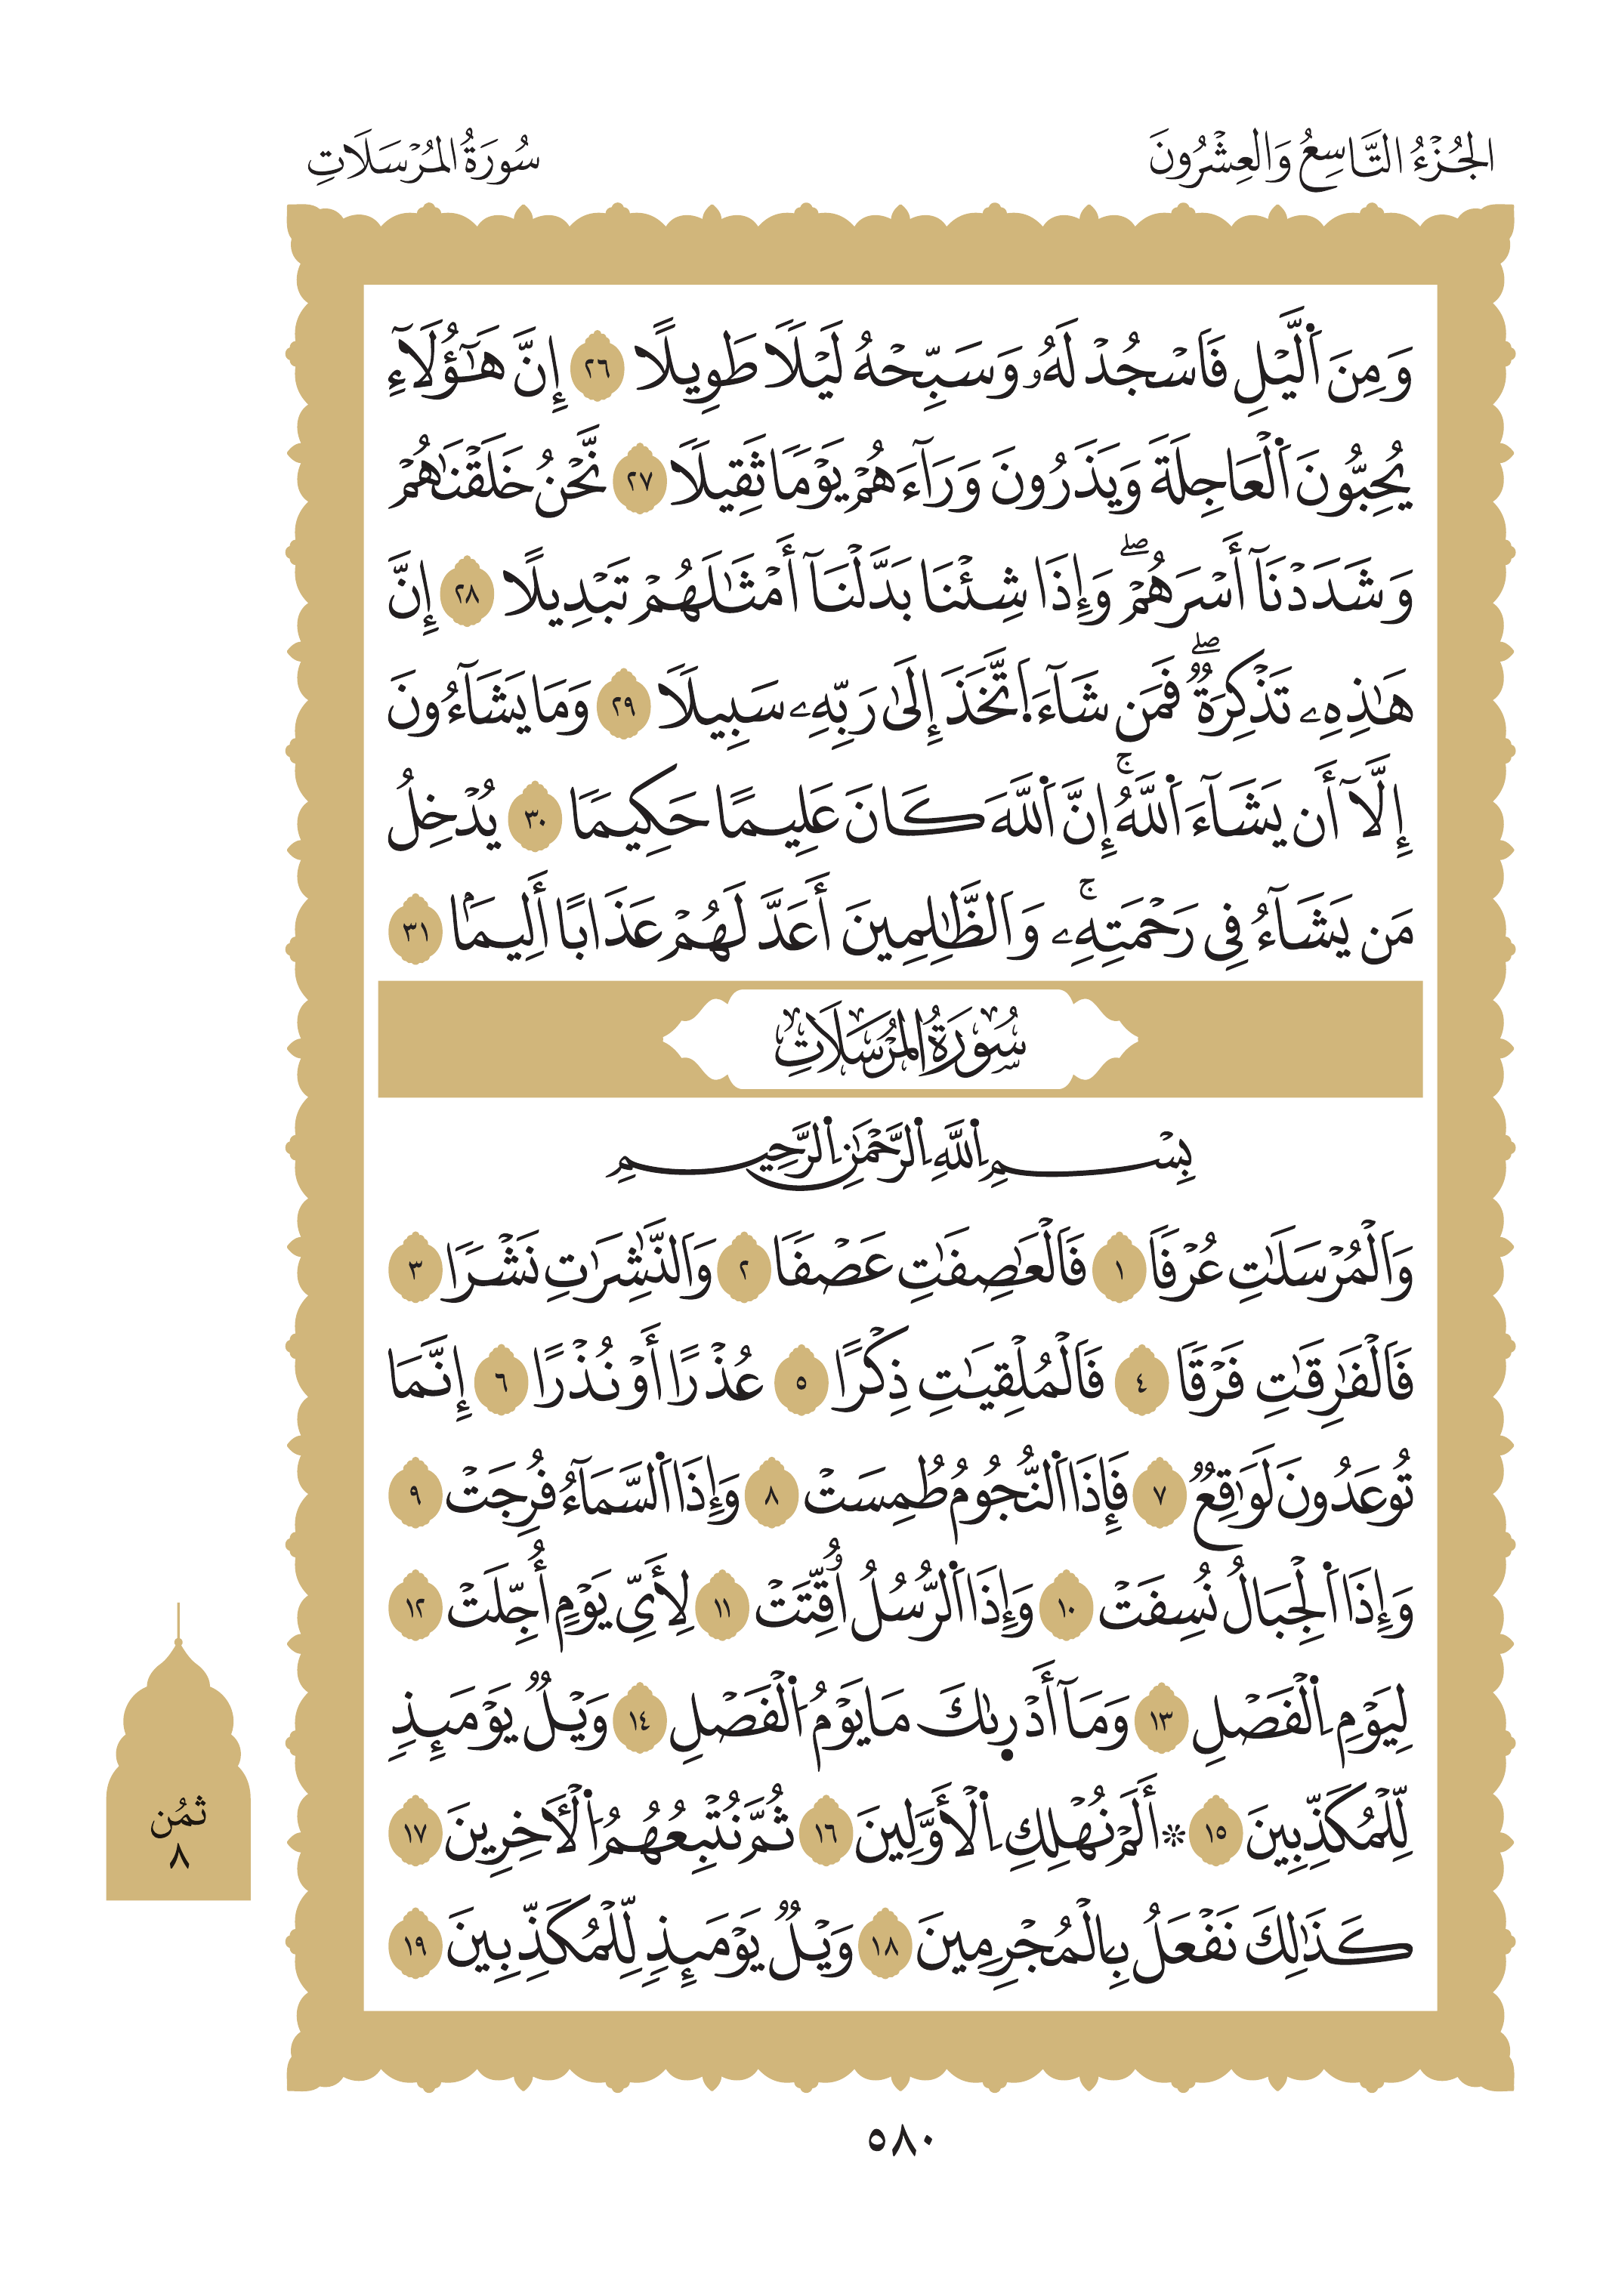 الجُزْءُ التَّاسِعُ وَالعِشْرُونَ
سُورَةُ المُرْسَلَاتِ
وَمِنَ ٱلَّيْلِ فَٱسْجُدْ لَهُۥ وَسَبِّحْهُ لَيْلًا طَوِيلًا ٢٦ إِنَّ هَـٰٓؤُلَآءِ
يُحِبُّونَ ٱلْعَاجِلَةَ وَيَذَرُونَ وَرَآءَهُمْ يَوْمًا ثَقِيلًا ٢٧ نَّحْنُ خَلَقْنَـٰهُمْ
وَشَدَدْنَآ أَسْرَهُمْۖ وَإِذَا شِئْنَا بَدَّلْنَآ أَمْثَـٰلَهُمْ تَبْدِيلًا ٢٨ إِنَّ
هَـٰذِهِۦ تَذْكِرَةٌۖ فَمَن شَآءَ ٱتَّخَذَ إِلَىٰ رَبِّهِۦ سَبِيلًا ٢٩ وَمَا يَشَآءُونَ
إِلَّآ أَن يَشَآءَ ٱللَّهُۚ إِنَّ ٱللَّهَ كَانَ عَلِيمًا حَكِيمًا ٣٠ يُدْخِلُ
مَن يَشَآءُ فِى رَحْمَتِهِۦۚ وَٱلظَّـٰلِمِينَ أَعَدَّ لَهُمْ عَذَابًا أَلِيمًۢا ٣١
سُورَةُ المُرْسَلَاتِ
بِسْمِ ٱللَّهِ ٱلرَّحْمَـٰنِ ٱلرَّحِيمِ
وَٱلْمُرْسَلَـٰتِ عُرْفًا ١ فَٱلْعَـٰصِفَـٰتِ عَصْفًا ٢ وَٱلنَّـٰشِرَٰتِ نَشْرًا ٣
فَٱلْفَـٰرِقَـٰتِ فَرْقًا ٤ فَٱلْمُلْقِيَـٰتِ ذِكْرًا ٥ عُذْرًا أَوْ نُذْرًا ٦ إِنَّمَا
تُوعَدُونَ لَوَٰقِعٌ ٧ فَإِذَا ٱلنُّجُومُ طُمِسَتْ ٨ وَإِذَا ٱلسَّمَآءُ فُرِجَتْ ٩
وَإِذَا ٱلْجِبَالُ نُسِفَتْ ١٠ وَإِذَا ٱلرُّسُلُ أُقِّتَتْ ١١ لِأَىِّ يَوْمٍ أُجِّلَتْ ١٢
لِيَوْمِ ٱلْفَصْلِ ١٣ وَمَآ أَدْرىٰكَ مَا يَوْمُ ٱلْفَصْلِ ١٤ وَيْلٌ يَوْمَئِذٍ
لِّلْمُكَذِّبِينَ ١٥ ۞ أَلَمْ نُهْلِكِ ٱلْأَوَّلِينَ ١٦ ثُمَّ نُتْبِعُهُمُ ٱلْأَخِرِينَ ١٧
كَذَٰلِكَ نَفْعَلُ بِٱلْمُجْرِمِينَ ١٨ وَيْلٌ يَوْمَئِذٍ لِّلْمُكَذِّبِينَ ١٩
ثُمُن
٨
٥٨٠